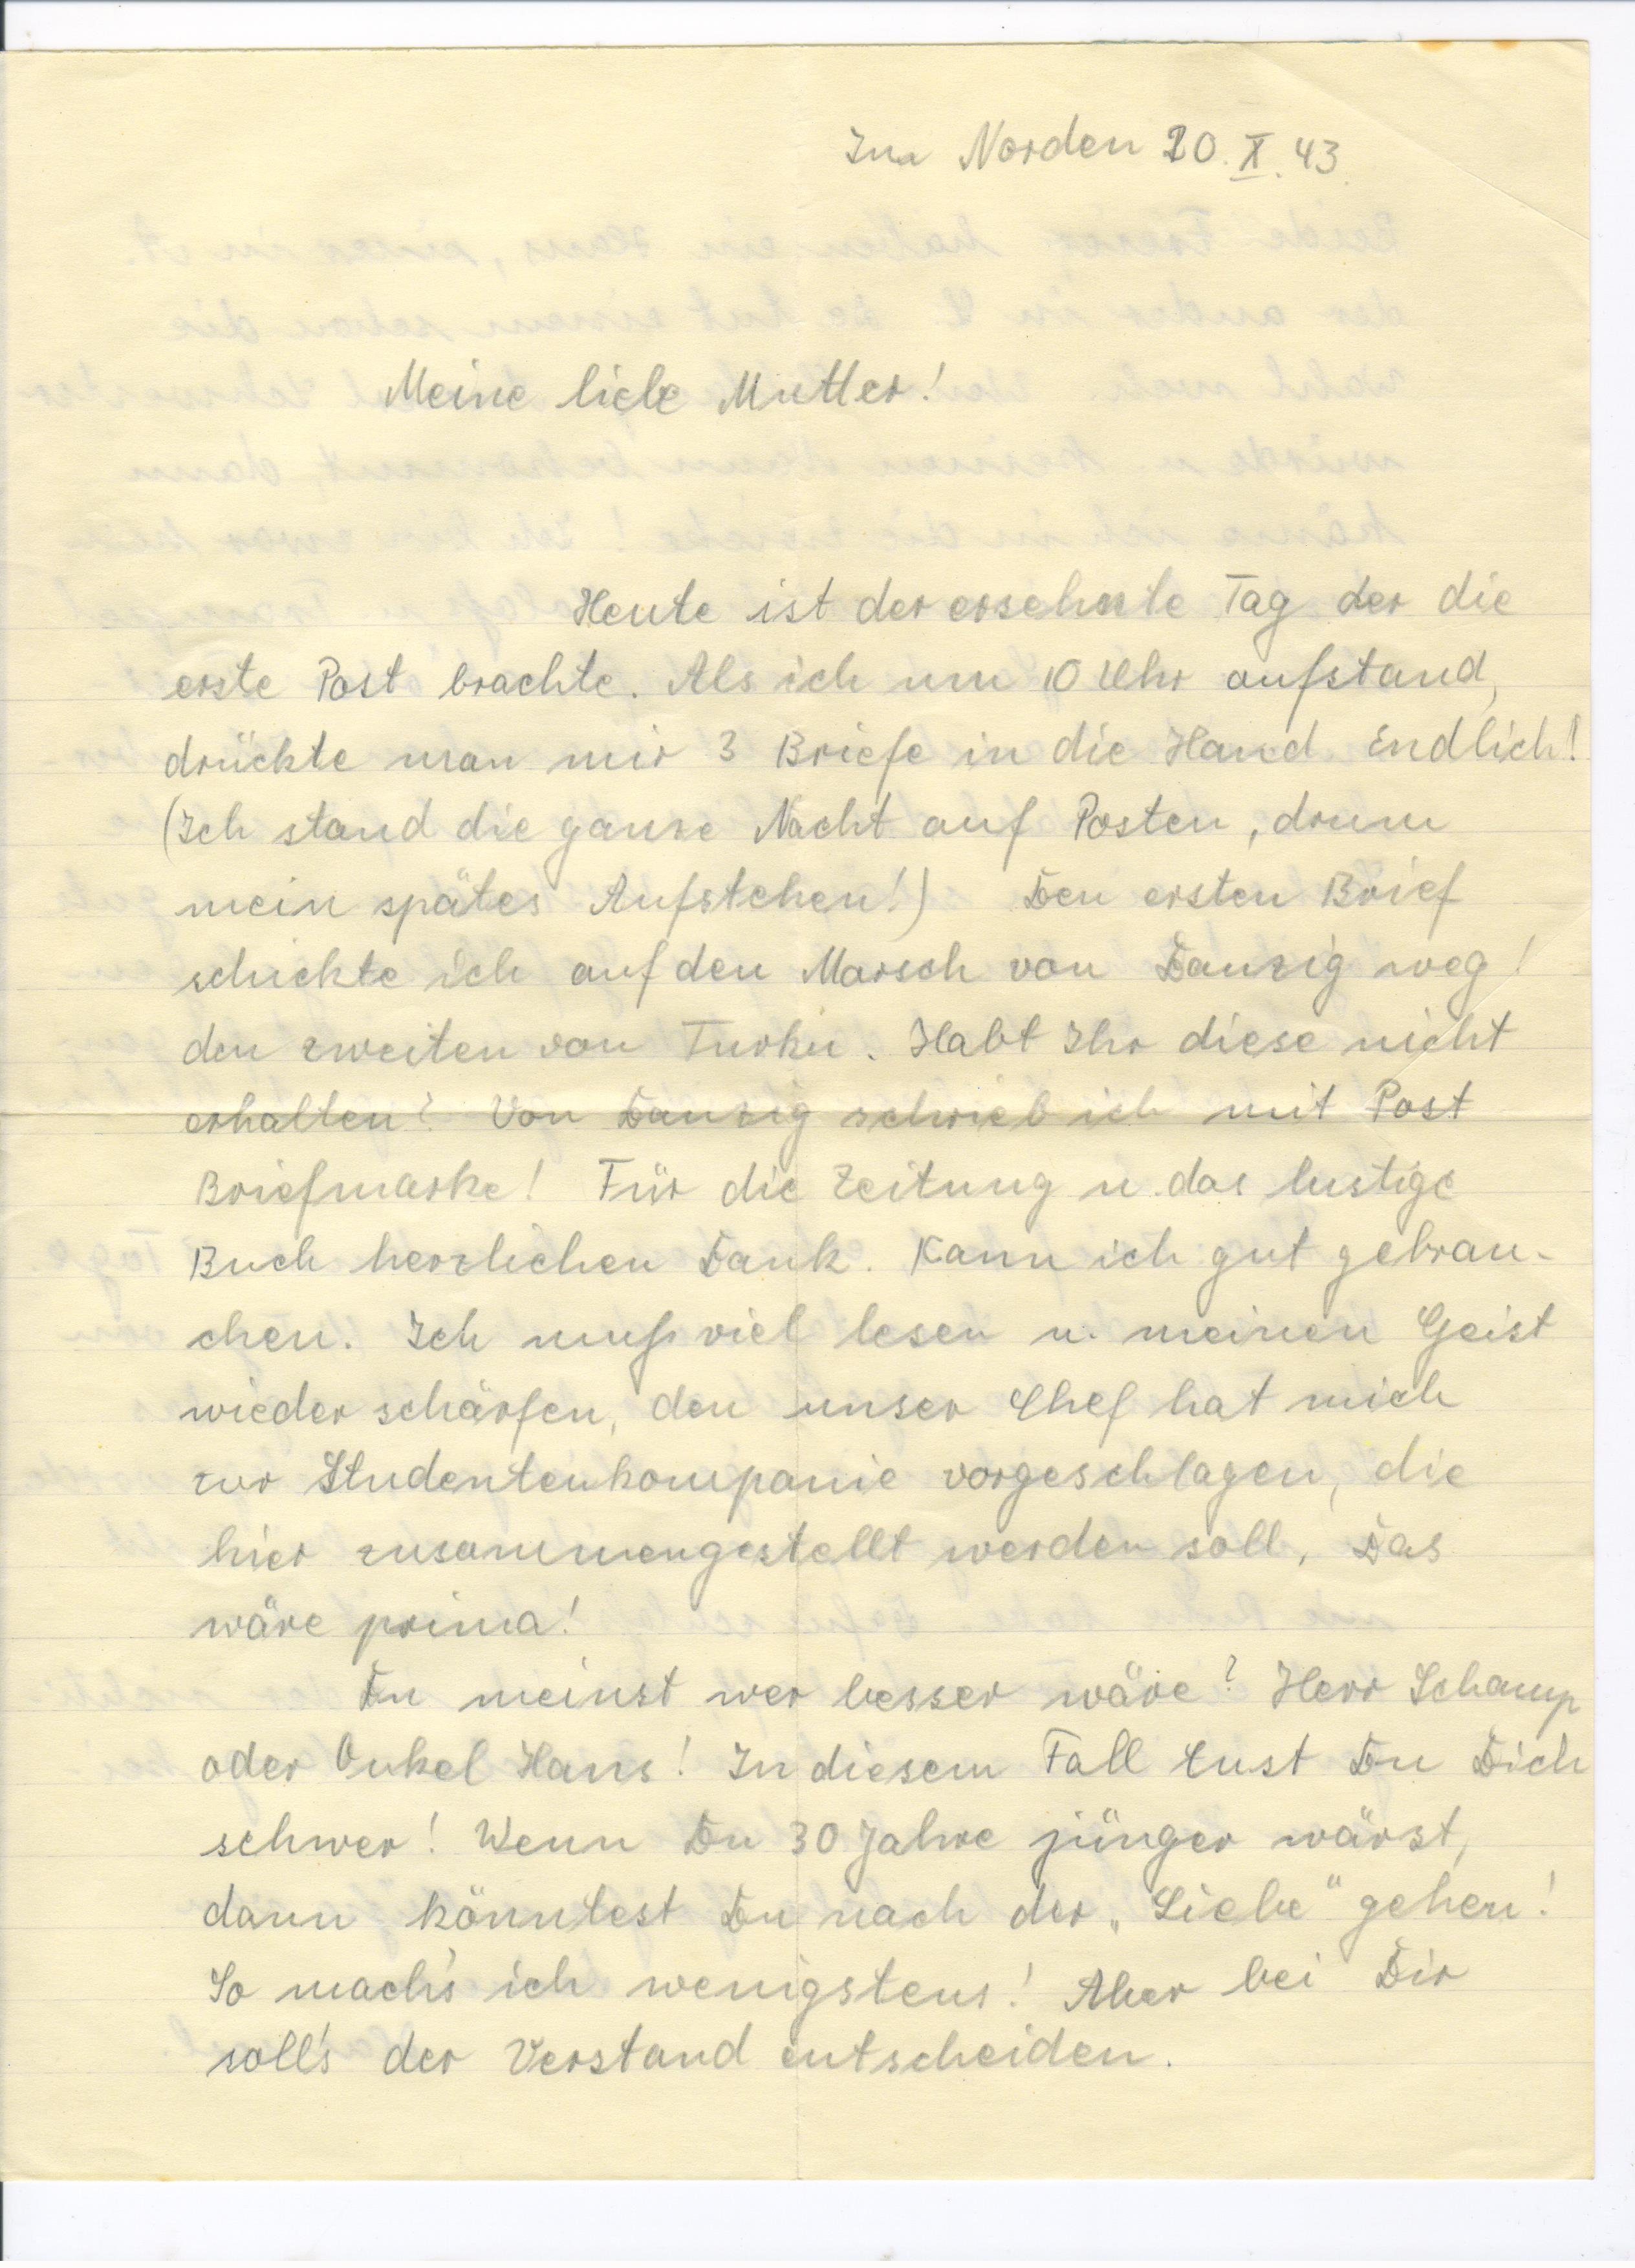 Im Norden 20. X. 43.
Meine liebe Mutter!
Heute ist der ersehnte Tag der die
erste Post brachte. Als ich um 10 Uhr aufstand,
drückte man mir 3 Briefe in die Hand. Endlich!
(Ich stand die ganze Nacht auf Posten, drum
mein spätes Aufstehen!) Den ersten Brief
schickte ich auf den Marsch von Danzig weg!
den zweiten von Turku. Habt Ihr diese nicht
erhalten? Von Danzig schrieb ich mit Post
Briefmarke! Für die Zeitung u. das lustige
Buch herzlichen Dank. Kann ich gut gebrau-
chen. Ich muß viel lesen u. meinen Geist
wieder schärfen, den unser Chef hat mich
zur Studentenkompanie vorgeschlagen, die
hier zusammengestellt werden soll. Das
wäre prima!
Du meinst wer besser wäre? Herr Schamp
oder Onkel Hans! In diesem Fall tust Du Dich
schwer! Wenn Du 30 Jahre jünger wärst,
dann könntest Du nach der „Liebe" gehen!
So mach's ich wenigstens! Aber bei Dir
soll's der Verstand entscheiden.